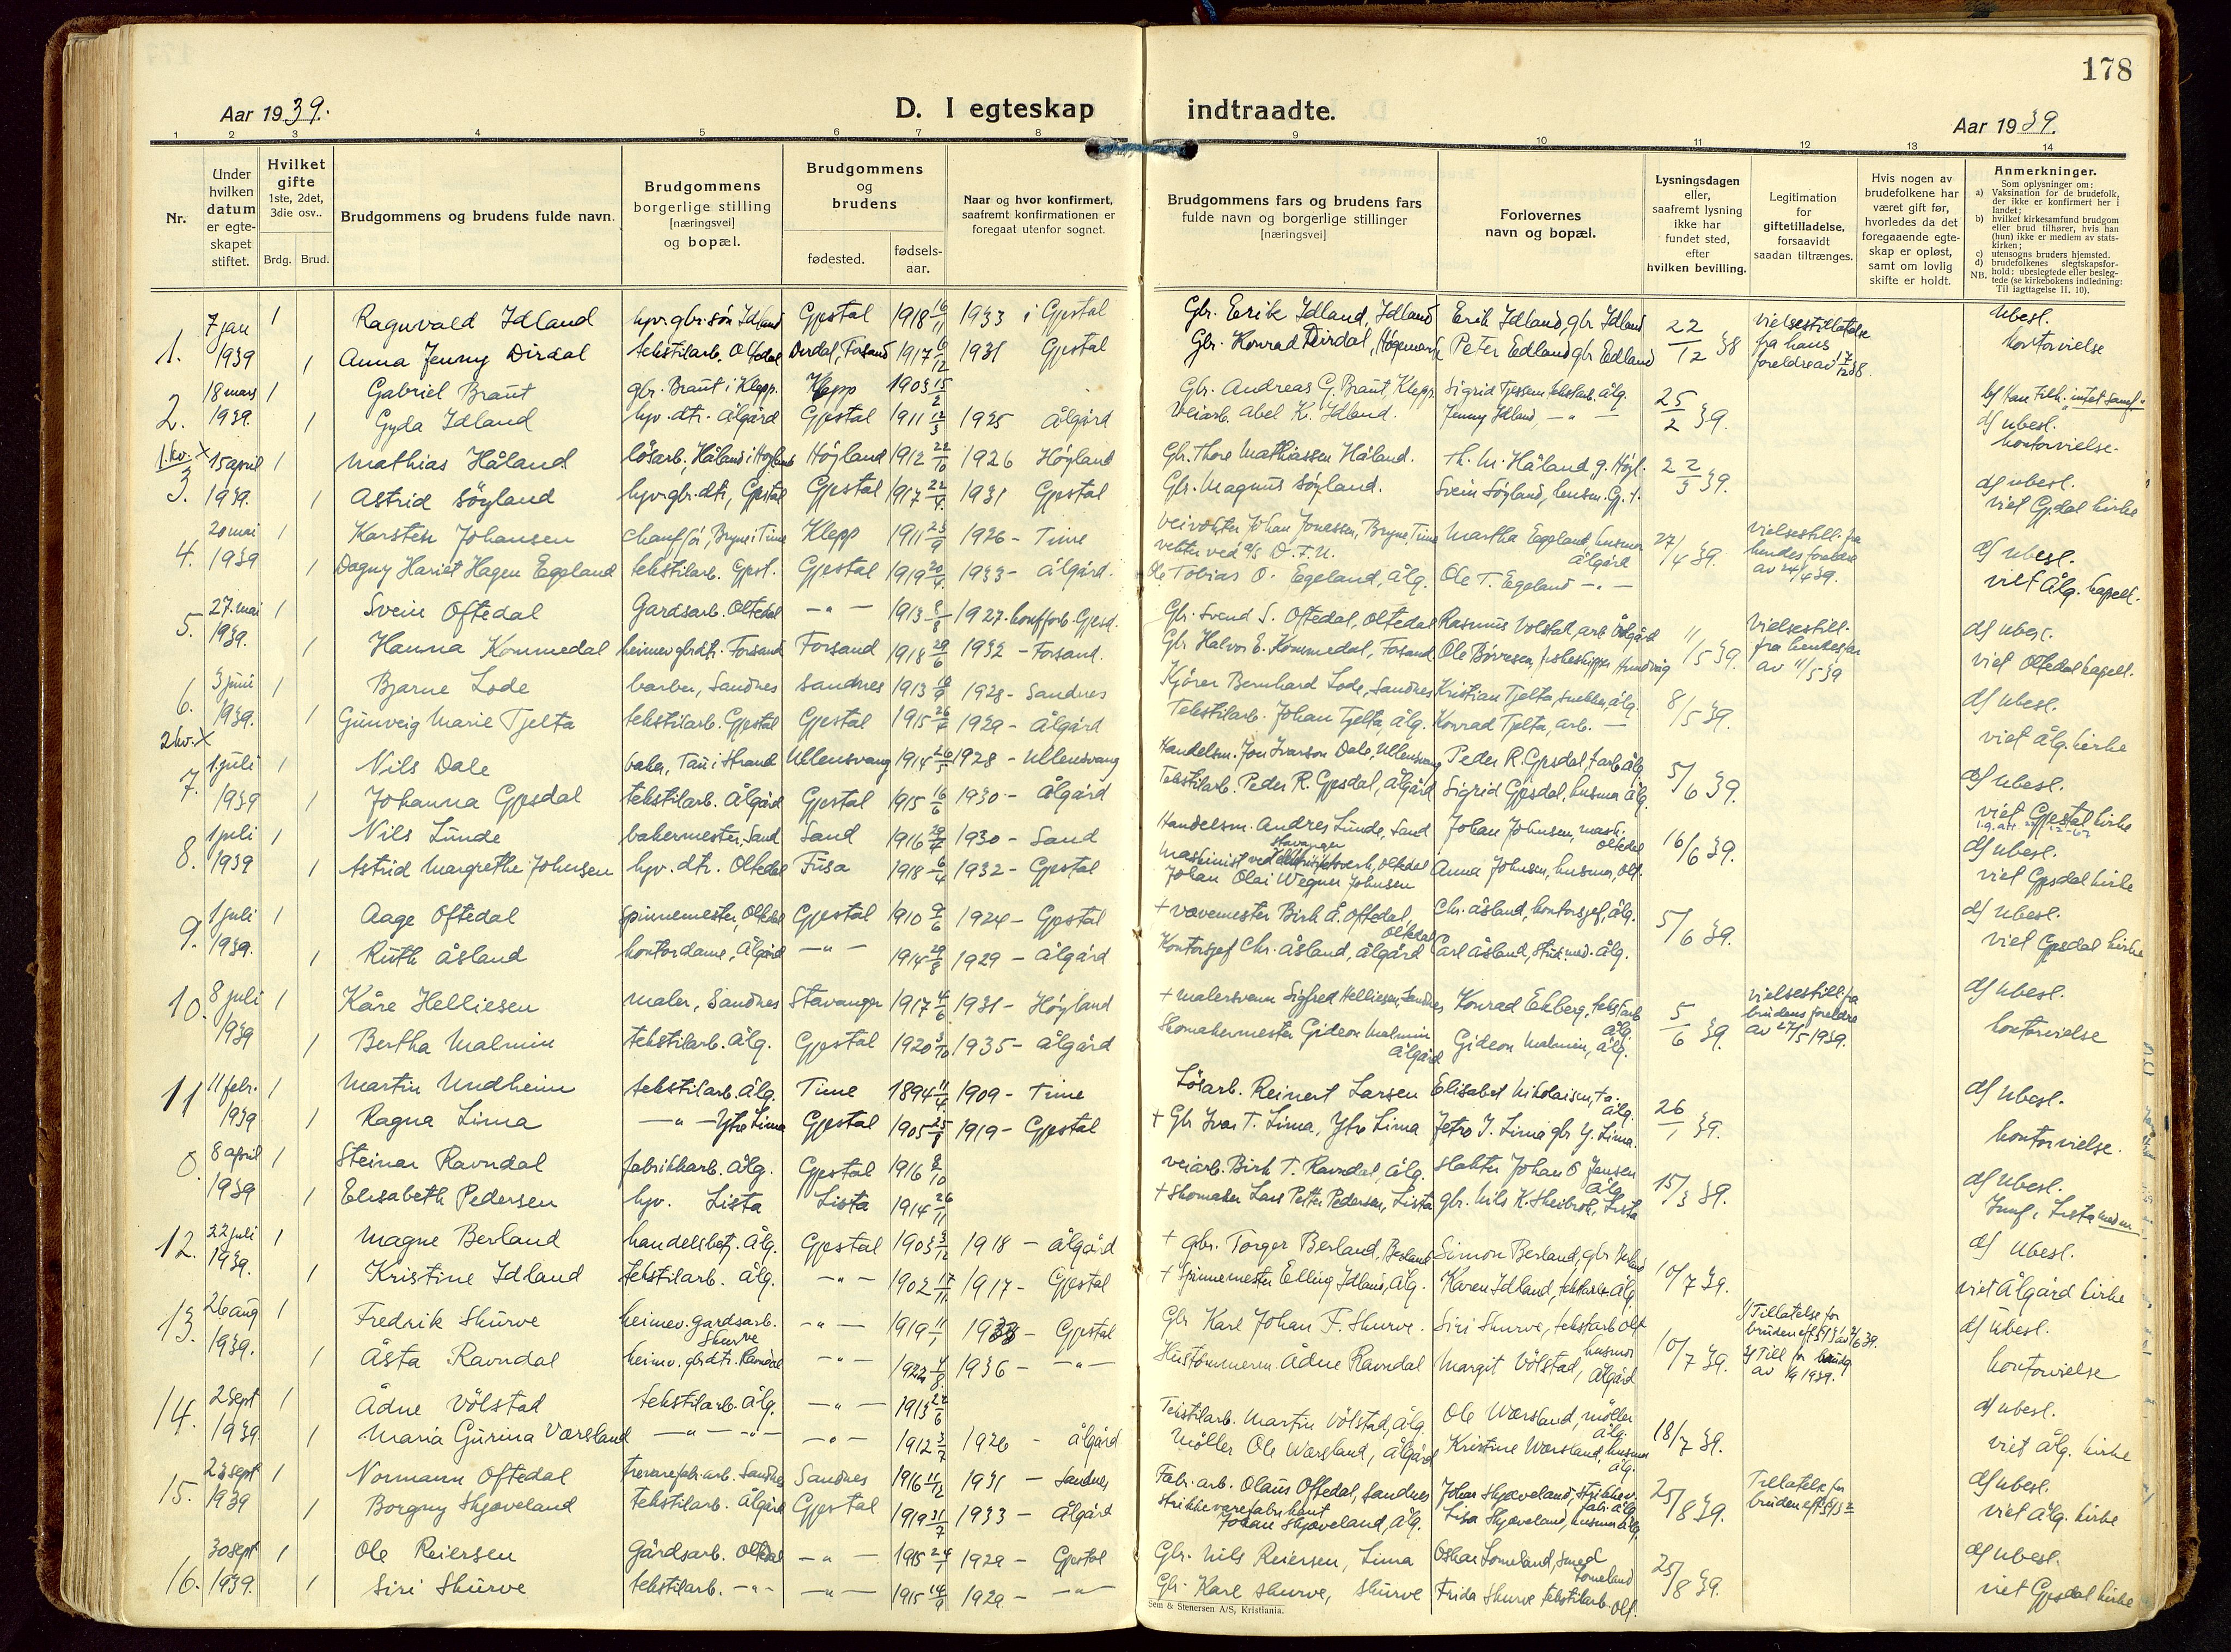 178
Aar 1939.
D. I egteskap indtraadte.
Aar 1939.
1 2 3 4 5 6 7 8 9 10 11 12 13 14
Nr.
Under hvilken datum er egteskapet stiftet.
Hvilket gifte 1ste, 2det, 3die osv..
Brdg. Brud.
Brudgommens og brudens fulde navn.
Brudgommens borgerlige stilling [næringsvei] og bopæl.
Brudgommens og brudens
fødested.
fødselsaar.
Naar og hvor konfirmert, saafremt konfirmationen er foregaat utenfor sognet.
Brudgommens fars og brudens fars fulde navn og borgerlige stillinger [næringsvei]
Forlovernes navn og bopæl.
Lysningsdagen eller, saafremt lysning ikke har fundet sted, efter hvilken bevilling.
Legitimation for giftetilladelse, forsaavidt saadan tiltrænges.
Hvis nogen av brudefolkene har været gift før, hvorledes da det foregaaende egteskap er opløst, samt om lovlig skifte er holdt.
Anmerkninger.
Som oplysninger om:
a) Vaksination for de brudefolk, der ikke er konfirmert her i landet;
b) hvilket kirkesamfund brudgom eller brud tilhører, hvis han (hun) ikke er medlem av statskirken;
c) utensogns bruders hjemsted.
d) brudefolkenes slegtskapsforhold: ubeslegtede eller beslegtede (se kirkebokens indledning: Til iagttagelse II. 10).
NB.
1. 7 jan 1 Ragnvald Idland hjv. gbr. søn Idland Gjestal 1918 16/11 1933 i Gjestal Gbr. Eerik Idland, Idland Erik Idland, gbr Idland 22/12 38 vielsestillatelse ubesl.
1939 1 Anna Jenny Dirdal tekstilarb. Oltedal Dirdal, Forsand 1917 6/12 1931 Gjestal Gbr. Konrad Dirdal, Høgemork Peter Edland gbr Edland fra hans foreldre av 17/12 38. kontorvielse
2. 18 mars 1 Gabriel Braut gbr. Braut i Klepp. Klepp 1903 15/2 Gbr. Andreas G. Braut, Klepp. Sigrid Tjessem, tekstarb. Ålg. 25/2 39. b) Han tilh. "intet samf."
1939. 1 Gyda Idland hjv. dtr. Ålgård Gjestal 1911 12/3 1925 Ålgård Veiarb. Abel K. Idland. Jenny Idland, — " — d) ubesl. kontorvielse.
1. kv. X
3. 15 april 1 Mathias Håland løsarb. Håland i Høyland Høyland 1912 22/10 1926 Høyland Gbr. Thore Mathiassen Håland. Th. M. Håland g. Høyl. 22/3 39. d) ubesl.
1939. 1 Astrid Søyland hjv. gbr. dtr, Gjestal Gjestal 1917 22/4 1931 Gjestal Gbr. Magnus Søyland. Svein Søyland, husm. Gj.s. viet Gj.dal kirke
4. 20 mai 1 Karsten Johansen chauffør, Bryne i Time Klepp 1911 23/9 1926 - Time Veivokter Johan Jonassen, Bryne, Time Martha Eggeland, husmor Ålgård 27/4 39. vielsestill. fra hendes foreldre av 24/4 39. d) ubesl.
1939 1 Dagny Hariet Hagen Eggeland tekstilarb. Gjest. Gjestal 1919 20/4 1933 - Ålgård. vekter ved A/S D.F.U. Ole Tobias O. Eggeland, Ålg. Ole T. Egeland — " — viet Ålg. kapell.
5. 27. mai 1 Svein Oftedal Gardsarb. Oltedal — " — 1913 8/8 1927. Gjesd. Gbr. Svend S. Oftedal, Oltedal Rasmus Volstad, arb. Ålgård 11/5 39. Vielsestill. fra hendes far av 11/5 39 d) ubesl.
1939. 1 Hanna Kommedal heimev. gbrdtr. Forsand Forsand 1918 29/6 1932 - Forsand. Gbr. Halvor E. Kommedal, Forsand Ole Børresen, fiskeskipper Hundvåg viet Oltedal kapell.
6. 3 juni 1 Bjarne Lode barber, Sandnes Sandnes 1913 18/9 1928 - Sandnes Kjører Bernhard Lode, Sandnes Kristian Tjelta, snekker, Ålg. 8/5 39. d) ubesl.
1939. 1 Gunveig Marie Tjelta tekstilarb. Gjestal Gjestal 1915 26/4 1929 - Ålgård Tekstilarb. Johan Tjelta, Ålg. Konrad Tjelta, arb. — viet Ålg. kirke
2 kv. X
7. 1 juli 1 Nils Dale baker, Tau i Strand Ullensvang 1914 26/5 1928 - Ullensvang Handelsm. Jon Ivarson Dale, Ullensvang Peder R. Gjesdal, t.arb. Ålg. 5/6 39. d) ubesl.
1939 1 Johanna Gjesdal tekstilarb. Ålgård Gjestal 1915 16/6 1930 - Ålgård Tekstilarb. Peder R. Gjesdal, Ålgård Sigrid Gjesdal, husmor Ålg. viet Gjestal kirke
8. 1 juli 1 Nils Lunde bakermester, Sand Sand 1916 29/7 1930 - Sand Handelsm. Andres Lunde, Sand Johan Johnsen, mask. Oltedal 16/6 39. d) ubesl.
1939 1 Astrid Margrethe Johnsen hjv. dtr. Oltedal Fusa 1918 6/4 1932 - Gjestal Maskinist ved Stavanger elektrisitetsverk, Oltedal Johan Olai Wegner Johnsen Anna Johnsen, husmor, Olt. viet Gjesdal kirke
9. 1 juli 1 Aage Oftedal spinnemester, Oltedal Gjestal 1910 9/6 1924 - Gjestal + vævemester Birk Å. Oftedal, Oltedal Chr. Åsland, kontorsjef, Ålg. 5/6 39. d) ubesl.
1939. 1 Ruth Åsland kontordame, Ålgård — " — 1914 29/8 1929 - Ålgård Kontorsjef Chr. Åsland, Ålgård Carl Åsland, stud. med. Ålg. viet Gjesdal kirke
10. 8 juli 1 Kåre Helliesen maler, Sandnes Stavanger 1917 4/6 1931 - Høyland + Malersvenn Sigfred Helliesen, Sandnes Konrad Ekberg, tekstarb Ålg. 5/6 39. vielsestill. fra brudens foreldre av 27/5 1939. d) ubesl.
1939 1 Bertha Malmin tekstilarb. Ålg. Gjestal 1920 3/10 1935 - Ålgård Skomakermester Gideon Malmin Ålgård Gideon Malmin, Ålg. kontorvielse
11 11 febr. 1 Martin Undheim tekstilarb. Ålg. Time 1894 11/4 1909 - Time Løsarb. Reinert Larsen Elisabet Nikolaisen, t.a. Ålg. 26/1 39. d) ubesl.
1939 1 Ragna Lima — " — Ytre Lima Gjestal 1905 25/8 1919 - Gjestal + Gbr Ivar T. Lima, Ytre Lima Jetro I. Lima gbr Y. Lima. kontorvielse.
0. 8 april 1 Steinar Ravndal fabrikkarb. Ålg. Gjestal 1916 8/10 veiarb. Birk T. Ravndal, Ålg. slakter Johan O Jensen Ålg. 15/3 39. d) ubesl.
1939 1 Elisabeth Pedersen hjv. Lista Lista 1914 26/11 + Skomaker Lars Petter Pedersen, Lista gbr. Nils K. Skeibrok, Lista Lista
12. 22 juli 1 Magne Berland handelsbetj. Ålg. Gjestal 1903 3/12 1918 - Ålgård + gbr. Torger Berland, Berland Simon Berland, gbr Berland 10/7 39. d) ubesl.
1939. 1 Kristine Idland tekstilarb. Ålg. — " — 1902 17/11 1917 - Gjestal + Spinnemester Elling Idland, Ålg. Karen Idland, tekstarb. Ålg. viet Ålgård kirke
13. 26 aug 1 Fredrik Skurve heimev. gardsarb. Skurve — " — 1919 11/1 1933 - Gjestal Gbr Karl Johan F. Skurve. Siri Skurve, tekstarb Olt 10/7 39. 1) Tillatelse for bruden d) ubesl.
1939. 1 Åsta Ravndal heimv. gbrdtr. Ravndal — " — 1922 4/8 1936 - — " — Hustømmerm. Ådne Ravndal Margit Volstad, husmor Ålgård 2) Till for brudg av 1939. kontorvielse
14. 2 sept 1 Ådne Vølstad tekstilarb. Ålg. — " — 1913 22/6 Tekstilarb. Martin Vølstad, Ålg. Ole Wærsland, møller Ålg. 18/7 39. d) ubesl.
1939 1 Maria Gurina Værsland — " — " — — " — 1912 3/7 1926 - Ålgård Møller Ole Wærsland, Ålgård Kristine Wærsland, husmor Ålg. viet Ålg. kirke
15. 23 sept 1 Normann Oftedal trevarefabr. arb. Sandnes Sandnes 1916 11/12 1931 - Sandnes Fabr. arb. Olaus Oftedal, Sandnes Johan Skjæveland, strikkev. fabr. Ålg. 25/8 39. Tillatelse for bruden d) ubesl.
1939 1 Borgny Skjæveland tekstilarb. Ålgård Gjestal 1919 31/7 1933 - Ålgård Strikkevarefabrikant Johan Skjæveland, Ålg. Lisa Skjæveland, husmor Ålg. viet Ålg. kirke
16. 30 sept 1 Ole Reiersen Gårdsarb. Oltedal — " — 1915 24/1 1929 - Gjestal Gbr. Nils Reiersen, Lima Oskar Lomeland, smed Lomeland 25/8 39. d) ubesl.
1939. 1 Siri Skurve tekstilarb. — " — — " — 1915 14/9 1929 - — " — Gbr. Karl Skurve, Skurve Frida Skurve tekstilarb. Olt. viet Gjesdal kirke
Sem & Stenersen A/S, Kristiania.